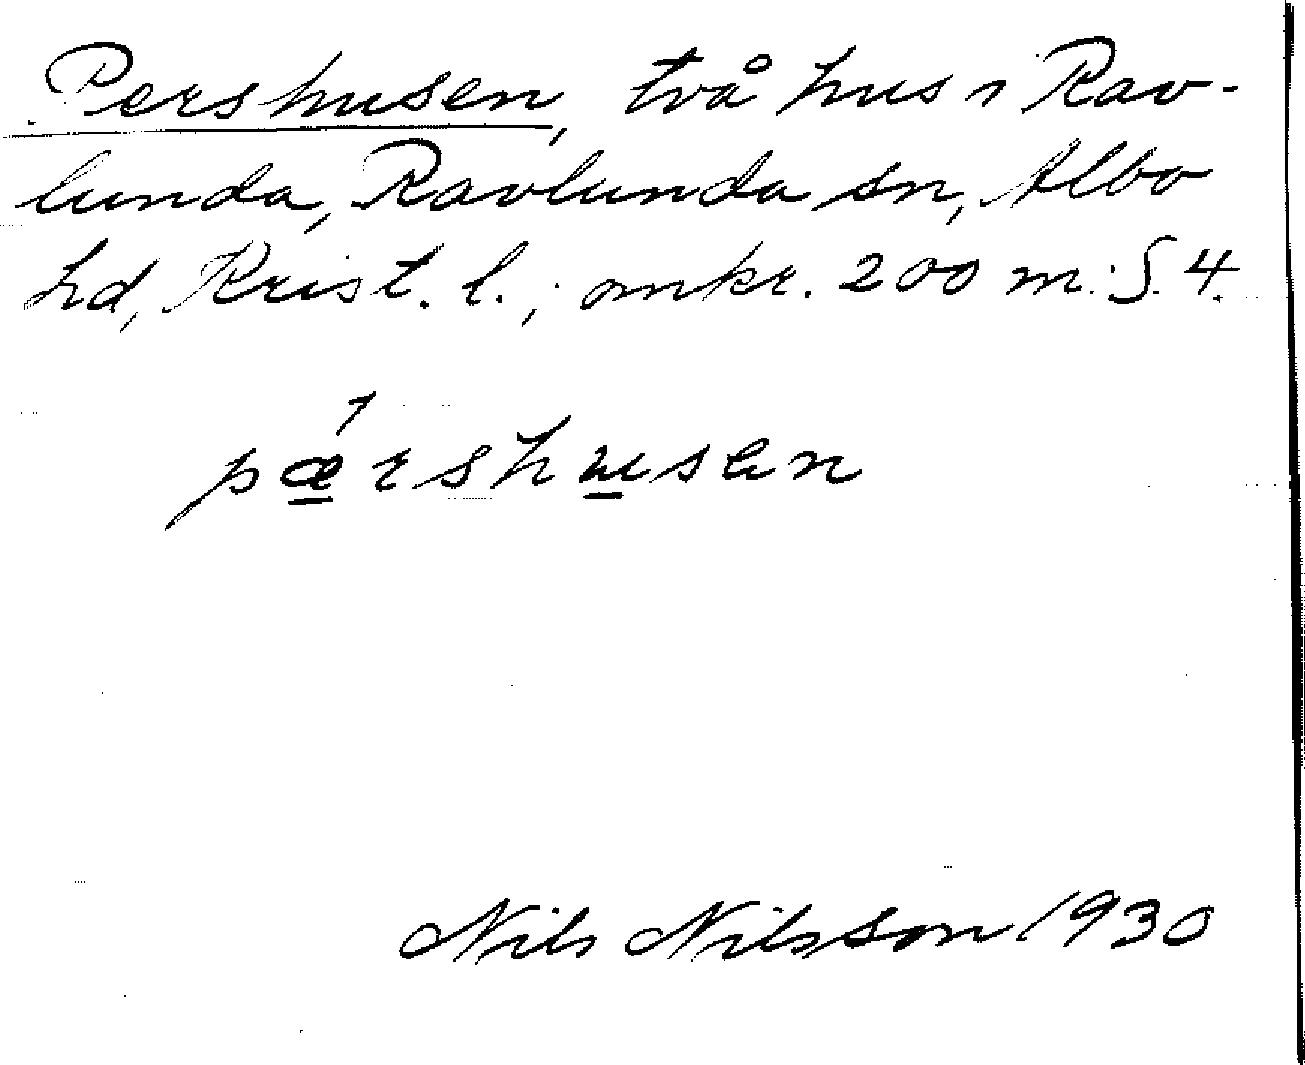 Pershusen, två hus i Rav-
lunda, Ravlunda sn, Albo
hd, Krist. l.; omkr. 200 m. S. 4.
pæ̲rshu̲sen
Nils Nilsson 1930